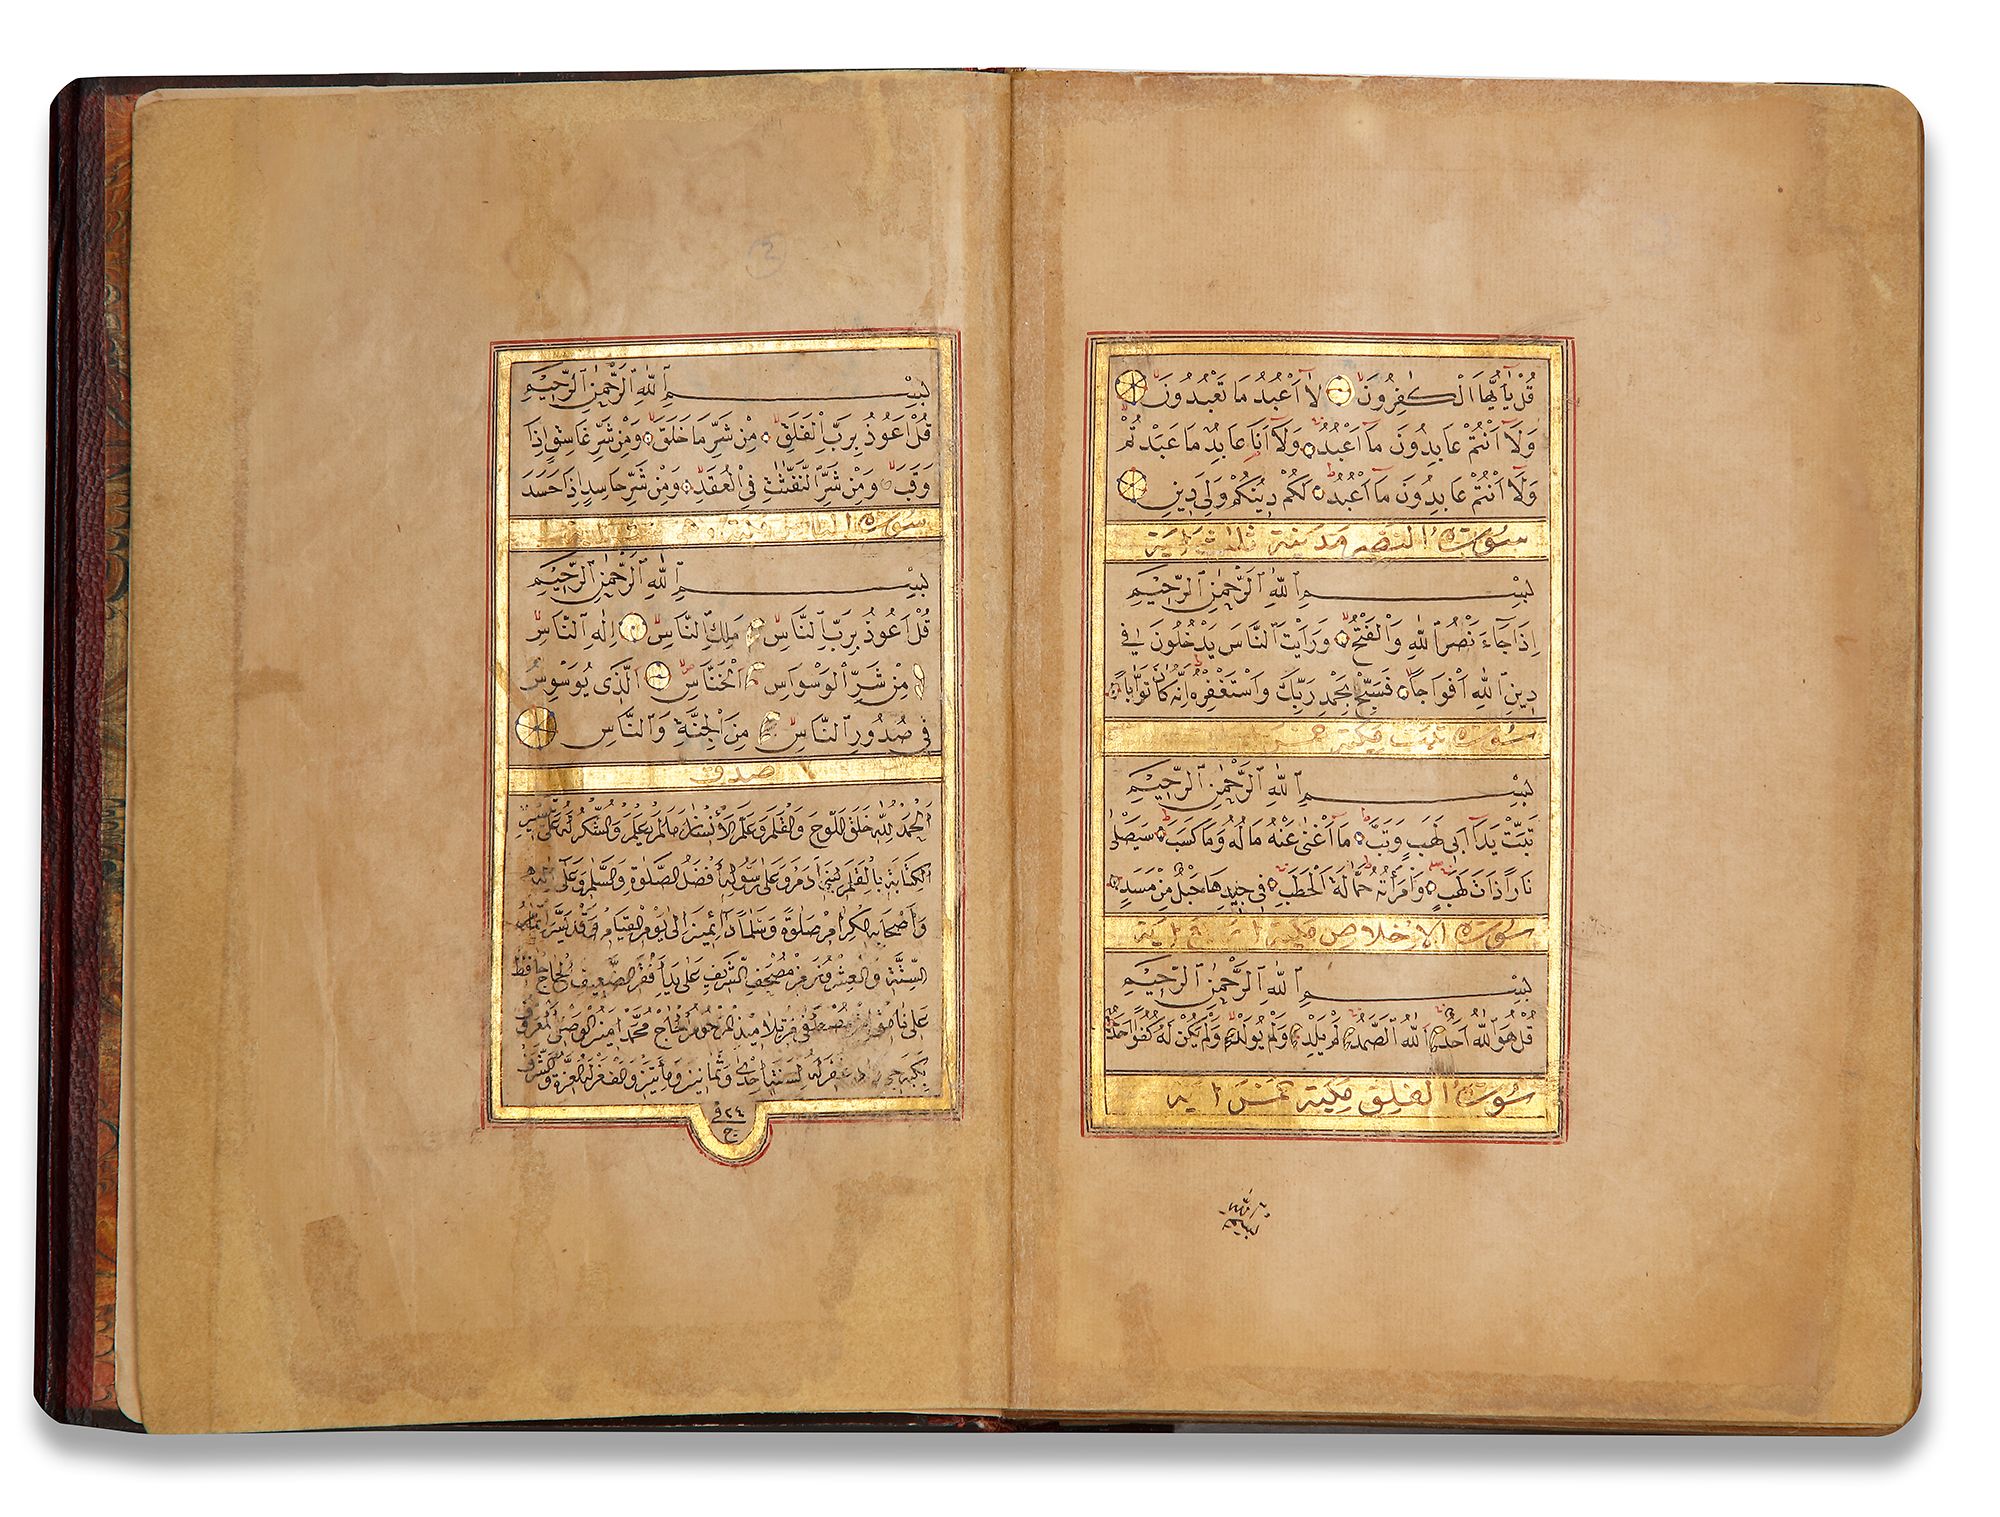 قُلْ يَآ اَيُّهَا الْكَافِرُونَ لَا اَعْبُدُ مَا تَعْبُدُونَ
وَلَآ اَنْتُمْ عَابِدُونَ مَآ اَعْبُدُ وَلَآ اَنَا۬ عَابِدٌ مَا عَبَدْتُمْ
وَلَآ اَنْتُمْ عَابِدُونَ مَآ اَعْبُدُ لَكُمْ دِينُكُمْ وَلِيَ دِينِ
سورة النصر مدنية ثلاث اية
بِسْمِ اللهِ الرَّحْمٰنِ الرَّحِيمِ
اِذَا جَآءَ نَصْرُ اللهِ وَالْفَتْحُ وَرَاَيْتَ النَّاسَ يَدْخُلُونَ فِي
دِينِ اللهِ اَفْوَاجًا فَسَبِّحْ بِحَمْدِ رَبِّكَ وَاسْتَغْفِرْهُ اِنَّهُ كَانَ تَوَّابًا
سورة تبت مكية خمس
بِسْمِ اللهِ الرَّحْمٰنِ الرَّحِيمِ
تَبَّتْ يَدَآ اَبِي لَهَبٍ وَتَبَّ مَآ اَغْنٰى عَنْهُ مَالُهُ وَمَا كَسَبَ سَيَصْلٰى
نَارًا ذَاتَ لَهَبٍ وَامْرَاَتُهُ حَمَّالَةَ الْحَطَبِ فِي جِيدِهَا حَبْلٌ مِنْ مَسَدٍ
سورة الاخلاص مكية اربع اية
بِسْمِ اللهِ الرَّحْمٰنِ الرَّحِيمِ
قُلْ هُوَ اللهُ اَحَدٌ اَللهُ الصَّمَدُ لَمْ يَلِدْ وَلَمْ يُولَدْ وَلَمْ يَكُنْ لَهُ كُفُوًا اَحَدٌ
سورة الفلق مكية خمس اية
بِسْمِ اللهِ الرَّحْمٰنِ الرَّحِيمِ
قُلْ اَعُوذُ بِرَبِّ الْفَلَقِ مِنْ شَرِّ مَا خَلَقَ وَمِنْ شَرِّ غَاسِقٍ اِذَا
وَقَبَ وَمِنْ شَرِّ النَّفَّاثَاتِ فِي الْعُقَدِ وَمِنْ شَرِّ حَاسِدٍ اِذَا حَسَدَ
سورة الناس
بِسْمِ اللهِ الرَّحْمٰنِ الرَّحِيمِ
قُلْ اَعُوذُ بِرَبِّ النَّاسِ مَلِكِ النَّاسِ اِلٰهِ النَّاسِ
مِنْ شَرِّ الْوَسْوَاسِ الْخَنَّاسِ اَلَّذِي يُوَسْوِسُ
فِي صُدُورِ النَّاسِ مِنَ الْجِنَّةِ وَالنَّاسِ
صدق
اَلْحَمْدُ لِلّٰهِ خَلَقَ اللَّوْحَ وَالْقَلَمَ وَعَلَّمَ الْأِنْسَانَ مَا لَمْ يَعْلَمْ وَالشُّكْرُ لَهُ عَلٰى تَيْسِيرِ
الْكِتَابَةِ بِالْقَلَمِ لِبَنِي اٰدَمَ وَعَلٰى رَسُولِهِ أَفْضَلُ الصَّلٰوةِ وَالسَّلَامِ وَعَلٰى اٰلِهِ
وَأَصْحَابِهِ الْكِرَامِ صَلٰوةً وَسَلَامًا دَائِمَيْنِ اِلٰى يَوْمِ الْقِيَامِ وَقَدْ يَسَّرَ اِتْمَامُ
السِّتَّةِ وَالْعِشْرُونَ مِنْ مُصْحَفِ الشَّرِيفِ عَلٰى يَدِ أَفْقَرِ الضَّعِيفِ الْحَاجّ حَافِظ
عَلِي مِنْ تَلَامِيذِ الْمَرْحُومِ الْحَاجّ مُحَمَّد اَمِين الْوَصْفِي الْمَعْرُوفُ
غَفَرَ لَهُ لِسَنَةِ اِحْدٰى وَثَمَانِينَ وَمِأَتَيْنِ وَأَلْفٍ مَنْ لَهُ الْعِزَّةُ وَالشَّرَفُ
٢٤